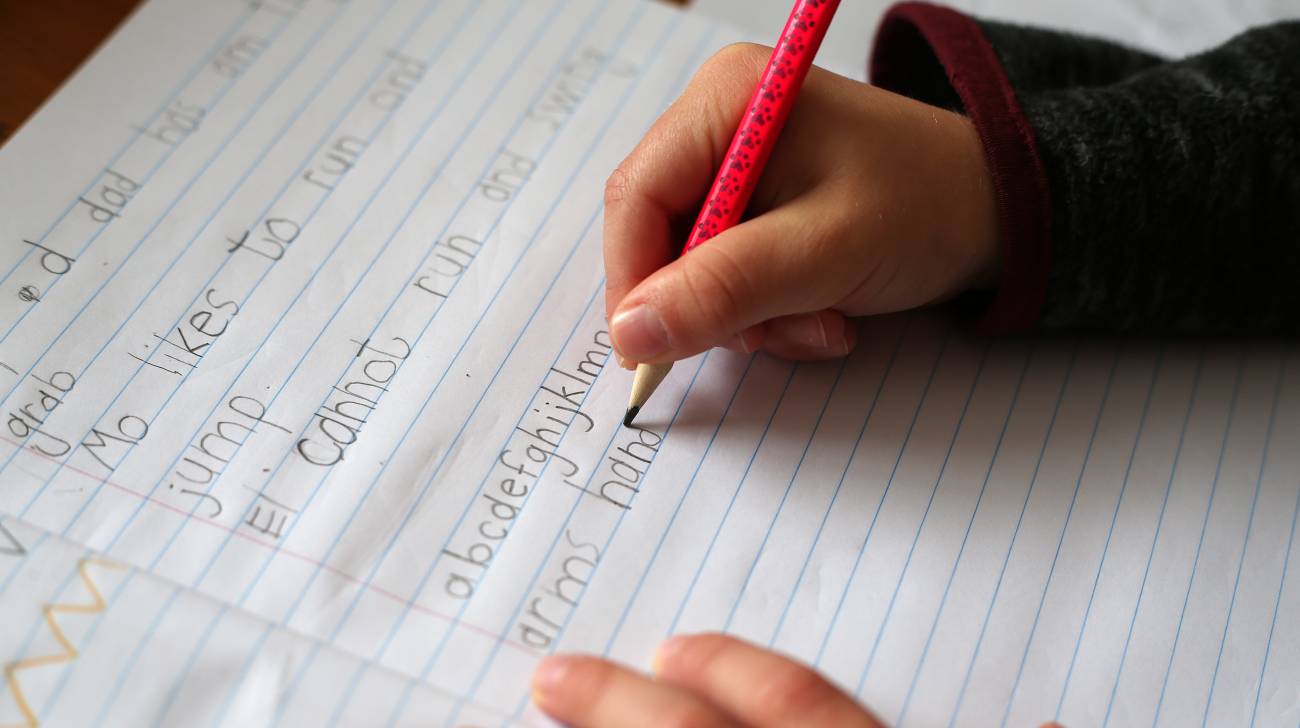 d dad has am
grab
Mo likes to run and
jump
El cannot run and swim
abcdefghijklmn
arms hand